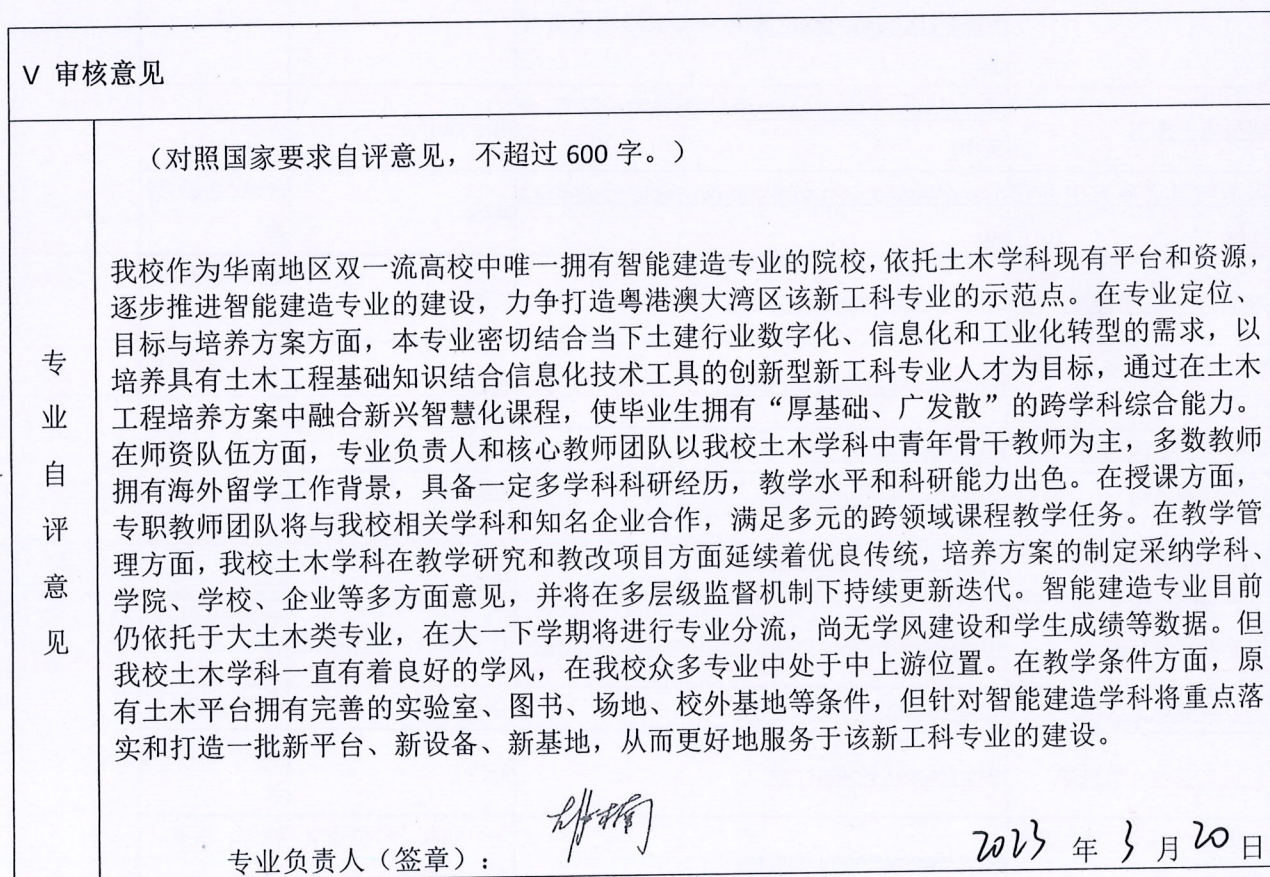 V 审核意见
专业自评意见
（对照国家要求自评意见，不超过 600 字。）
我校作为华南地区双一流高校中唯一拥有智能建造专业的院校，依托土木学科现有平台和资源，
逐步推进智能建造专业的建设，力争打造粤港澳大湾区该新工科专业的示范点。在专业定位、
目标与培养方案方面，本专业密切结合当下土建行业数字化、信息化和工业化转型的需求，以
培养具有土木工程基础知识结合信息化技术工具的创新型新工科专业人才为目标，通过在土木
工程培养方案中融合新兴智慧化课程，使毕业生拥有“厚基础、广发散”的跨学科综合能力。
在师资队伍方面，专业负责人和核心教师团队以我校土木学科中青年骨干教师为主，多数教师
拥有海外留学工作背景，具备一定多学科科研经历，教学水平和科研能力出色。在授课方面，
专职教师团队将与我校相关学科和知名企业合作，满足多元的跨领域课程教学任务。在教学管
理方面，我校土木学科在教学研究和教改项目方面延续着优良传统，培养方案的制定采纳学科、
学院、学校、企业等多方面意见，并将在多层级监督机制下持续更新迭代。智能建造专业目前
仍依托于大土木类专业，在大一下学期将进行专业分流，尚无学风建设和学生成绩等数据。但
我校土木学科一直有着良好的学风，在我校众多专业中处于中上游位置。在教学条件方面，原
有土木平台拥有完善的实验室、图书、场地、校外基地等条件，但针对智能建造学科将重点落
实和打造一批新平台、新设备、新基地，从而更好地服务于该新工科专业的建设。
专业负责人（签章）：
2023 年 3 月 20 日